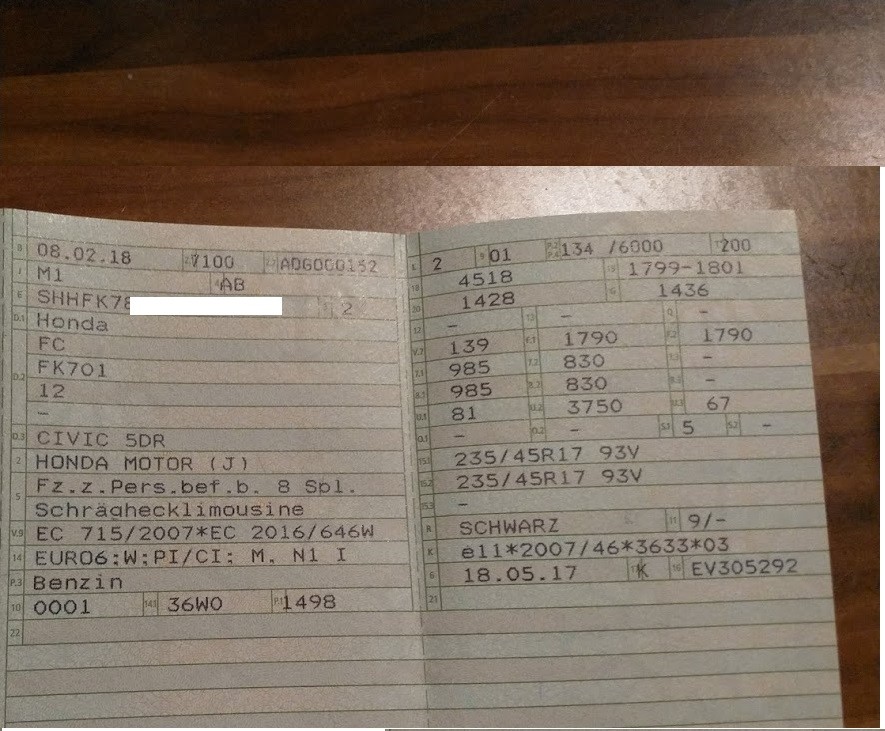 B 08.02.18 2.1 7100 2.2 ADG000152
J M1 4 AB
E SHHFK78 3 2
D.1 Honda
FC
D.2 FK701
12
–
D.3 CIVIC 5DR
2 HONDA MOTOR (J)
5 Fz.z.Pers.bef.b. 8 Spl.
Schräghecklimousine
V.9 EC 715/2007*EC 2016/646W
14 EURO6;W;PI/CI; M, N1 I
P.3 Benzin
10 0001 14.1 36W0 P.1 1498
22
L 2 9 01 P.2 P.4 134 /6000 T 200
18 4518 19 1799-1801
20 1428 G 1436
12 – 13 – Q –
V.7 139 F.1 1790 F.2 1790
7.1 985 7.2 830 7.3 –
8.1 985 8.2 830 8.3 –
U.1 81 U.2 3750 U.3 67
O.1 – O.2 – S.1 5 S.2 –
15.1 235/45R17 93V
15.2 235/45R17 93V
15.3 –
R SCHWARZ 11 9/–
K e11*2007/46*3633*03
6 18.05.17 17 K 16 EV305292
21